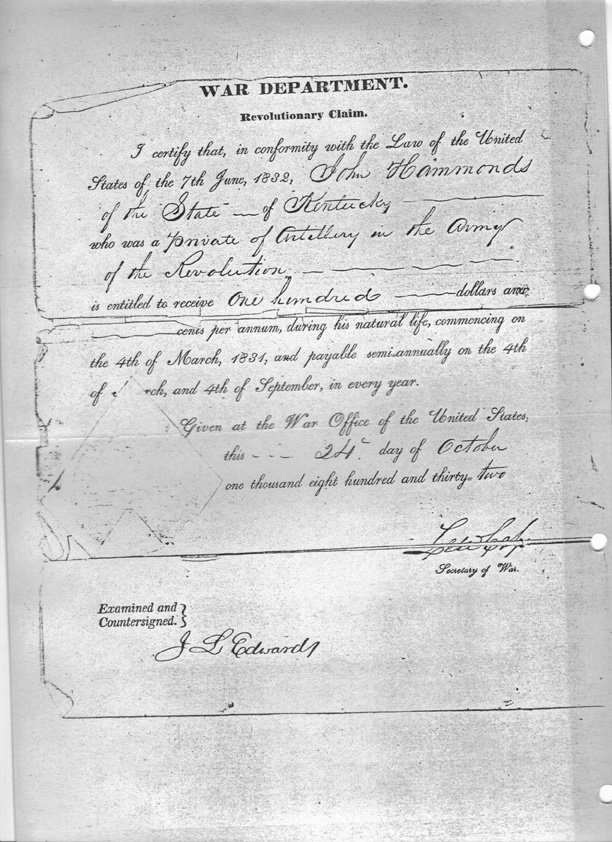 WAR DEPARTMENT.
Revolutionary Claim.
I certify that, in conformity with the Law of the United
States of the 7th June, 1832, John Hammonds
of the State — of Kentucky
who was a Private of Artillery in the Army
of the Revolution
is entitled to receive One hundred dollars and
cents per annum, during his natural life, commencing on
the 4th of March, 1831, and payable semi-annually on the 4th
of rch, and 4th of September, in every year.
Given at the War Office of the United States,
this - - - 24 day of October
one thousand eight hundred and thirty-two
Secretary of War.
Examined and
Countersigned.
J L Edwards